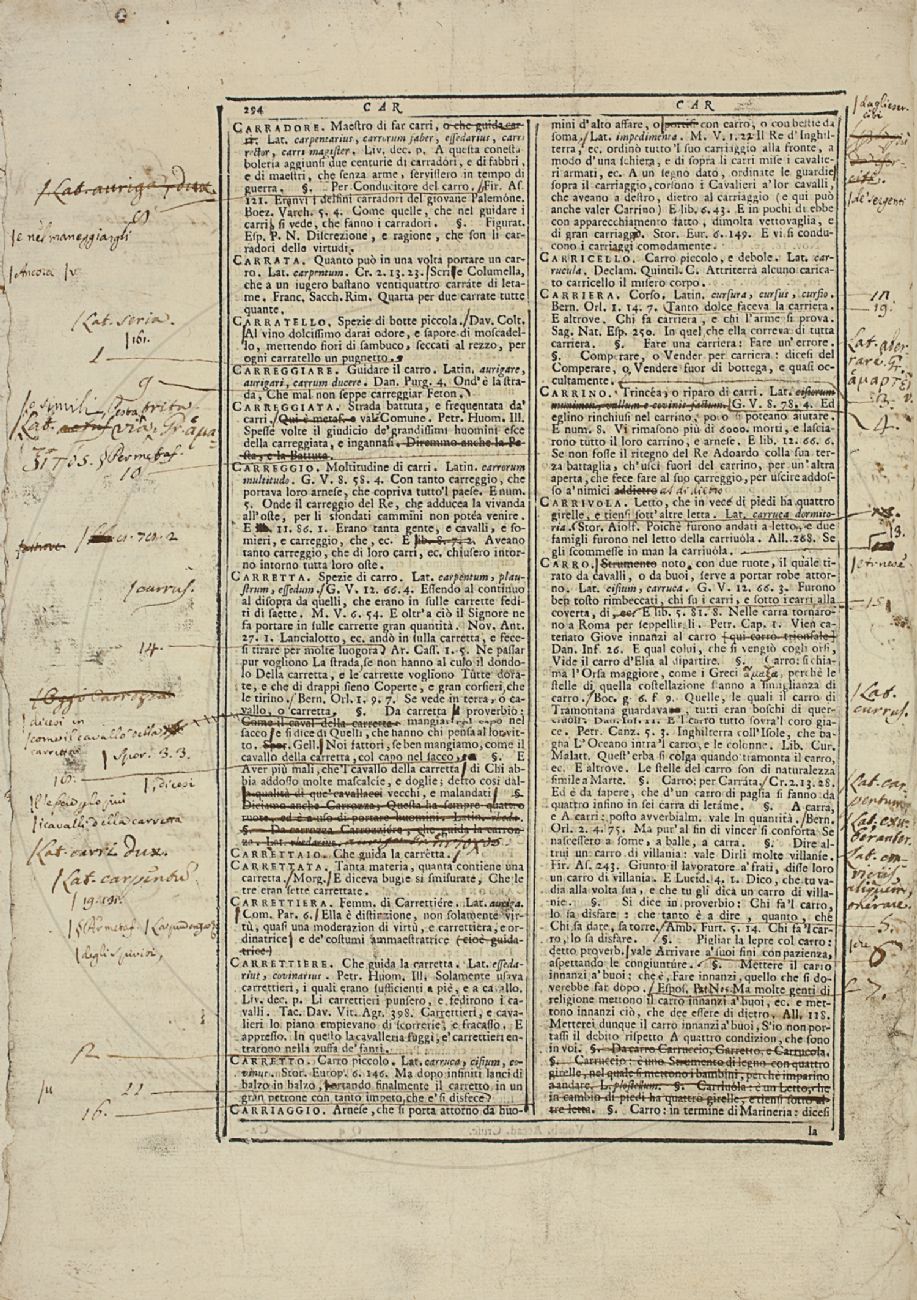 294 CAR
CARRADORE. Maestro di far carri, o che guida car-
ri. Lat. carpentarius, carrorum faber, essedarius, carri
rector, carri magister. Liv. dec. p. A questa conesta-
boleria aggiunsi due centurie di carradori, e di fabbri,
e di maestri, che senza arme, servissero in tempo di
guerra. §. Per Conducitore del carro. Fir. As.
121. Eranvi i destini carradori del giovane Palemone.
Boez. Varch. 5. 4. Come quelle, che nel guidare i
carri si vede, che fanno i carradori. §. Figurat.
Esp. P. N. Discrezione, e ragione, che son li car-
radori della virtudi.
CARRATA. Quanto può in una volta portare un car-
ro. Lat. carpentum. Cr. 2. 13. 23. Scrise Columella,
che a un iugero bastano ventiquattro carrate di leta-
me. Franc. Sacch. Rim. Quarta per due carrate tutte
quante.
CARRATELLO. Spezie di botte piccola. Dav. Colt.
Al vino dolcissimo darai odore, e sapore di moscadel-
lo, mettendo fiori di sambuco, seccati al rezzo, per
ogni carratello un pugnetto.
CARREGGIARE. Guidare il carro. Latin. aurigare,
aurigari, carrum ducere. Dan. Purg. 4. Ond'è la stra-
da, Che mal non seppe carreggiar Feton.
CARREGGIATA. Strada battuta, e frequentata da'
carri. Qui è metaf. e val Comune. Petr. Huom. Ill.
Spesse volte il giudicio de' grandissimi huomini esce
della carreggiata, e ingannasi. Diremmo anche la Pe-
sta, e la Battuta.
CARREGGIO. Moltitudine di carri. Latin. carrorum
multitudo. G. V. 8. 58. 4. Con tanto carreggio, che
portava loro arnese, che copriva tutto'l paese. E num.
5. Onde il carreggio del Re, che adducea la vivanda
all'oste, per li sfondati cammini non potéa venire.
E 11. 86. 1. Erano tanta gente, e cavalli, e so-
mieri, e carreggio, che, ec. E lib. 8. 7. 2. Aveano
tanto carreggio, che di loro carri, ec. chiusero intor-
no intorno tutta loro oste.
CARRETTA. Spezie di carro. Lat. carpentum, plau-
strum, essedum. G. V. 12. 66. 4. Essendo al continuo
al disopra di quelli, che erano in sulle carrette fedi-
ti di saette. M. V. 6. 54. E oltr'a ciò il Signore ne
fa portare in sulle carrette gran quantità. Nov. Ant.
27. 1. Lancialotto, ec. andò in sulla carretta, e fece-
si tirare per molte luogora. Ar. Cass. 1. 5. Ne passar
pur vogliono La strada, se non hanno al culo il dondo-
lo Della carretta, e le carrette vogliono Tutte dora-
te, e che di drappi sieno Coperte, e gran corsieri, che
le tirino. Bern. Orl. 1. 9. 7. Se vede in terra, o ca-
vallo, o carretta. §. Da carretta proverbio:
Come il caval della carretta mangiar col capo nel
sacco e si dice di Quelli, che hanno chi pensa al lor vit-
to. Spor. Gell. Noi fattori, se ben mangiamo, come il
cavallo della carretta, col capo nel sacco, ec. §. E
Aver più mali, che'l cavallo della carretta di Chi ab-
bia addosso molte malscalcie, e doglie; detto così dal-
la qualità di que' cavallacci vecchi, e malandati. §.
Diciamo anche Carrozza, Questa ha sempre quattro
ruote, ed è a uso di portare huomini. Latin. rheda.
§. Da carrozza Carrozziere, che guida la carroz-
za. Lat. rhedarius.
CARRETTAIO. Che guida la carretta.
CARRETTATA. Tanta materia, quanta contiene una
carretta. Morg. E diceva bugie sì smisurate, Che le
tre eran sette carrettate.
CARRETTIERA. Femm. di Carrettiére. Lat. auriga.
Com. Par. 6. Ella è distinzione, non solamente vir-
tù, quasi una moderazion di virtù, e carrettiera, e or-
dinatrice e de' costumi ammaestratrice (cioè guida-
trice)
CARRETTIERE. Che guida la carretta. Lat. esseda-
rius, covinarius. Petr. Huom. Ill. Solamente usava
carrettieri, i quali erano sufficienti a piè, e a cavallo.
Liv. dec. p. Li carrettieri punsero, e fedirono i ca-
valli. Tac. Dav. Vit. Agr. 398. Carrettieri, e cava-
lieri lo piano empievano di scorrerie, e fracasso. E
appresso. In questo la cavalleria fuggi, e' carrettieri en-
trarono nella zuffa de' fanti.
CARRETTO. Carro piccolo. Lat. carruca, cisium, co-
vinus. Stor. Europ. 6. 146. Ma dopo infiniti lanci di
balzo in balzo, portando finalmente il carretto in un
gran petrone con tanto impeto, che e' si disfece
CARRIAGGIO. Arnese, che si porta attorno da huo-
CAR
mini d'alto affare, o con carro, o con bestie da
soma. Lat. impedimenta. M. V. 1. 22 Il Re d'Inghil-
terra, ec. ordinò tutto'l suo carriaggio alla fronte, a
modo d'una schiera, e di sopra li carri mise i cavalie-
ri armati, ec. A un segno dato, ordinate le guardie
sopra il carriaggio, corsono i Cavalieri a' lor cavalli,
che aveano a destro, dietro al carriaggio (e qui può
anche valer Carrino) E lib. 6. 43. E in puchi dì ebbe
con apparecchiamento fatto, dimolta vettovaglia, e
di gran carriaggio. Stor. Eur. 6. 149. E vi si condu-
cono i carriaggi comodamente.
CARRICELLO. Carro piccolo, e debole. Lat. car-
rucula. Declam. Quintil. C. Attriterrà alcuno carica-
to carricello il misero corpo.
CARRIERA. Corso. Latin. cursura, cursus, cursio.
Bern. Orl. 1. 14. 7. Tanto dolce faceva la carriera.
E altrove. Chi fa carriera, e chi l'arme si prova.
Sag. Nat. Esp. 250. In quel che ella correva di tutta
carriera. §. Fare una carriera: Fare un'errore.
§. Comperare, o Vender per carriera: dicesi del
Comperare, o Vendere fuor di bottega, e quasi oc-
cultamente.
CARRINO. Trincéa, o riparo di carri. Lat. cisorum
munimen, vallum e covinis factum. G. V. 8. 78. 4. Ed
eglino rinchiusi nel carrino, poco si poteano aiutare.
E num. 8. Vi rimasono più di 6000. morti, e lascia-
rono tutto il loro carrino, e arnese. E lib. 12. 66. 6.
Se non fosse il ritegno del Re Adoardo colla sua ter-
za battaglia, ch'uscì fuori del carrino, per un'altra
aperta, che fece fare al suo carreggio, per uscire addos-
so a'nimici addietro al di dietro
CARRIVOLA. Letto, che in vece di piedi ha quattro
girelle, e tiensi sott'altre letta. Lat. carruca dormito-
ria. Stor. Aiolf. Poichè furono andati a letto, e due
famigli furono nel letto della carriuòla. All. 268. Se
gli scommesse in man la carriuòla.
CARRO. Strumento noto, con due ruote, il quále ti-
rato da cavalli, o da buoi, serve a portar robe attor-
no. Lat. cisium, carruca. G. V. 12. 66. 3. Furono
ben tosto rimbeccati, chi su i carri, e sotto i carri alla
coverta, di, ec. E lib. 5. 81. 8. Nelle carra tornaro-
no a Roma per seppellirgli. Petr. Cap. 1. Vien ca-
tenato Giove innanzi al carro [qui carro trionfale]
Dan. Inf. 26. E qual colui, che si vengiò cogli orsi,
Vide il carro d'Elia al dipartire. §. Carro: si chia-
ma l'Orsa maggiore, come i Greci ἅμαξα, perchè le
stelle di quella costellazione fanno a simiglianza di
carro. Boc. g. 6. f. 9. Quelle, le quali il carro di
Tramontana guardava, tutti eran boschi di quer-
ciuoli. Dan. Inf. 11. E'l carro tutto sovra'l coro gia-
ce. Petr. Cenz. 5. 3. Inghilterra coll'Isole, che ba-
gna L'Oceano intra'l carro, e le colonne. Lib. Cur.
Malatt. Quest'erba si colga quando tramonta il carro,
ec. E altrove. Le stelle del carro son di naturalezza
simile a Marte. §. Carro: per Carráta. Cr. 2. 13. 28.
Ed è da sapere, che d'un carro di paglia si fanno da
quattro infino in sei carra di letáme. §. A carra,
e A carri: posto avverbialm. vale In quantità. Bern.
Orl. 2. 4. 75. Ma pur'al fin di vincer si conforta Se
nascessero a some, a balle, a carra. §. Dire al-
trui un carro di villania: vale Dirli molte villanie.
Fir. As. 243. Giunto il lavoratore a' frati, disse loro
un carro di villania. E Lucid. 4. 1. Dico, che tu va-
dia alla volta sua, e che tu gli dica un carro di villa-
nie. §. Si dice in proverbio: Chi fa'l carro,
lo sa disfare: che tanto è a dire, quanto, che
Chi fa dare, sa torre. Amb. Furt. 5. 14. Chi fa'l car-
ro, lo sa disfare. §. Pigliar la lepre col carro:
detto proverb. vale Arrivare a'suoi fini con pazienza,
aspettando le congiunture. §. Mettere il carro
innanzi a'buoi: che è, Fare innanzi, quello che si do-
verebbe far dopo. Espos. Pat. Nos. Ma molte genti di
religione mettono il carro innanzi a'buoi, ec. e met-
tono innanzi ciò, che dee essere di dietro. All. 118.
Metterei dunque il carro innanzi a'buoi, S'io non por-
tassi il debito rispetto A quattro condizion, che sono
in voi. §. Da carro Carruccio, Carretto, e Carrucola.
§. Carruccio: è uno Strumento di legno con quattro
girelle, nel quale si mettono i bambini, perchè imparino
a andare. L. plostellum. §. Carriuola: è un Letto, che
in cambio di piedi ha quattro girelle, e tiensi sotto al-
tre letta. §. Carro: in termine di Marineria: dicesi
la
Lat. auriga, dux.
e nel maneggiargli
Ancora
Lat. seria.
161.
9
10
14.
dicesi in
16.
dicesi
cavalli della carretta
Lat. carri dux.
12
11
16.
19.
4.
13.
15
Lat.
currus.
5.
6
7.